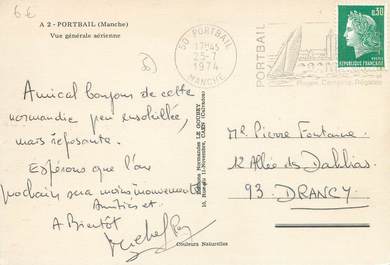 6€
A 2 - PORTBAIL (Manche)
Vue générale aérienne
50 PORTBAIL
17H45
25-7
1974
MANCHE
PORTBAIL
0,30
REPUBLIQUE FRANÇAISE
POSTES
Amical bonjour de cette
normandie peu ensoleillée,
mais reposante.
Espérons que l'an
prochain sera moins mouvementé
Amitiés et
A Bientôt
Editions Normandes LE GOUBEY
10, Rue du 11-Novembre, CAEN (Calvados)
Mr Pierre Fontaine
12 Allée des Dahlias
93. DRANCY
Couleurs Naturelles